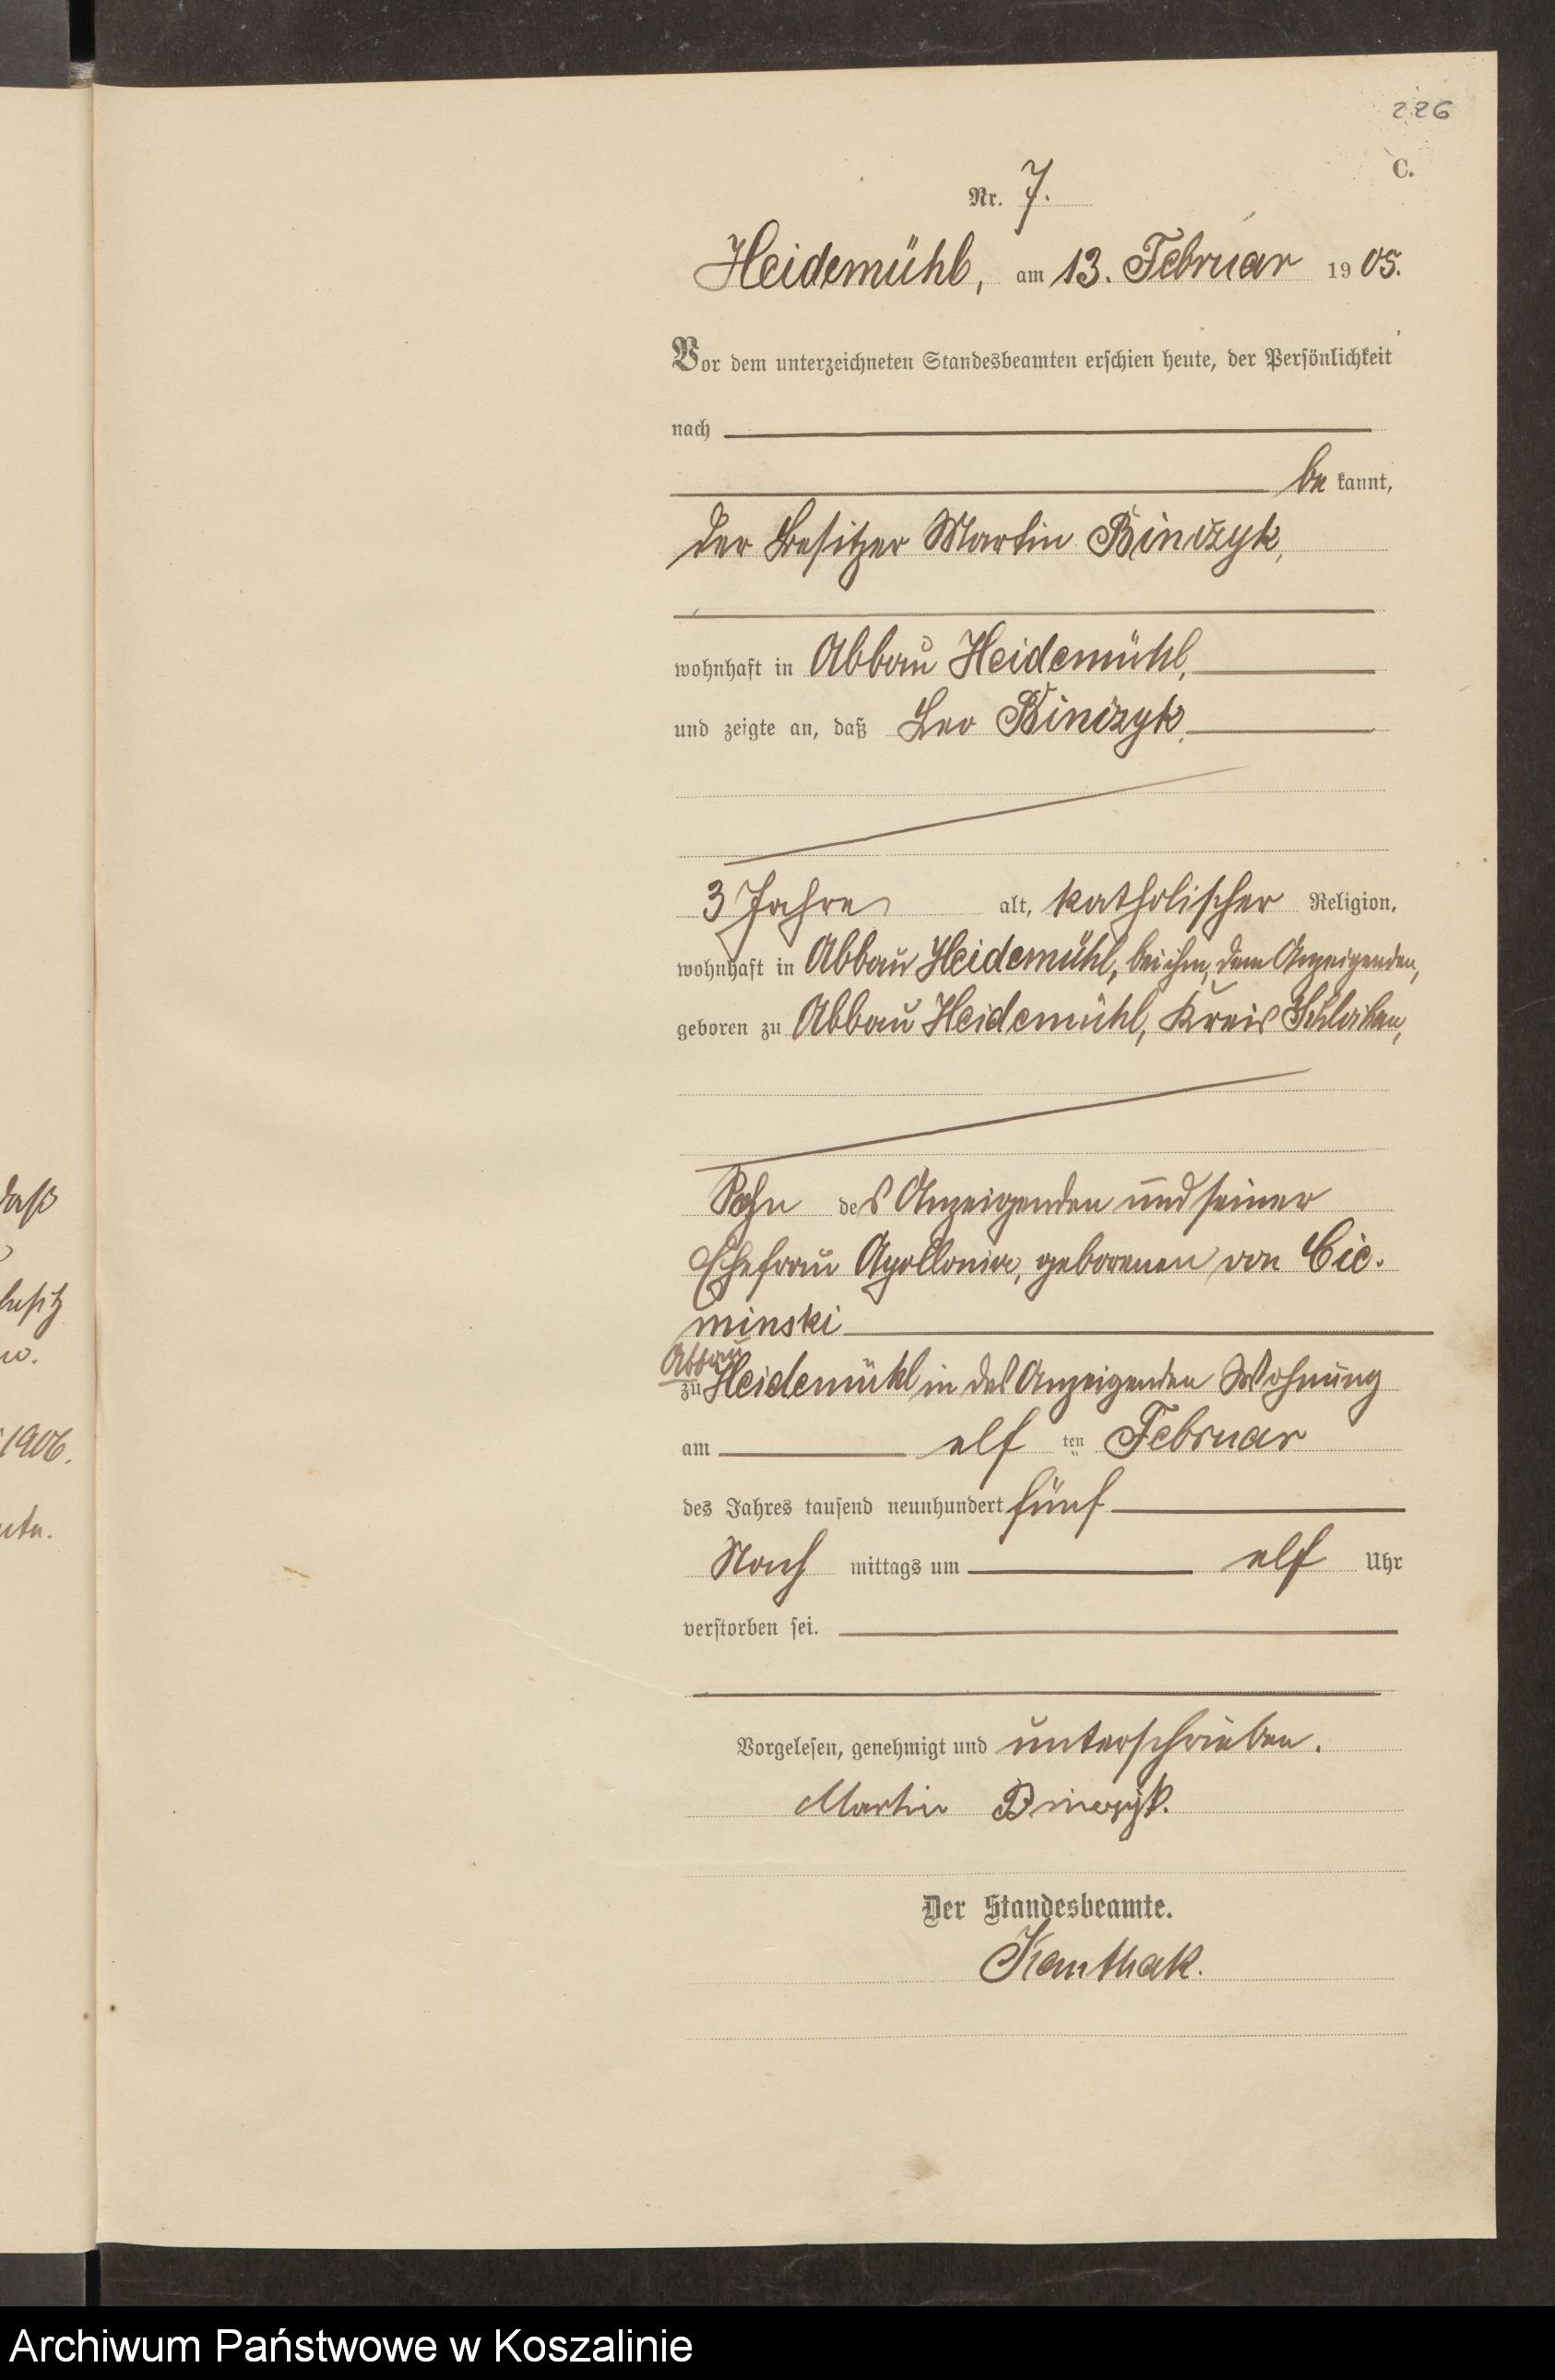 226
C.
Nr. 7.
Heidemühl, am 13. Februar 1905.
Vor dem unterzeichneten Standesbeamten erschien heute, der Persönlichkeit
nach
bekannt,
der Besitzer Martin Binczyk,
wohnhaft in Abbau Heidemühl,
und zeigte an, daß Leo Binczyk,
3 Jahre alt, katholischer Religion,
wohnhaft in Abbau Heidemühl, bei ihm, dem Anzeigenden,
geboren zu Abbau Heidemühl, Kreis Schlochau,
Sohn des Anzeigenden und seiner
Ehefrau Apollonia, geborenen von Cie-
minski
Abbau
zu Heidemühl in des Anzeigenden Wohnung
am elf ten Februar
des Jahres tausend neunhundert fünf
Nach mittags um elf Uhr
verstorben sei.
Vorgelesen, genehmigt und unterschrieben.
Martin Binczyk.
Der Standesbeamte.
Kanthak.
daß
1906.
Archiwum Państwowe w Koszalinie